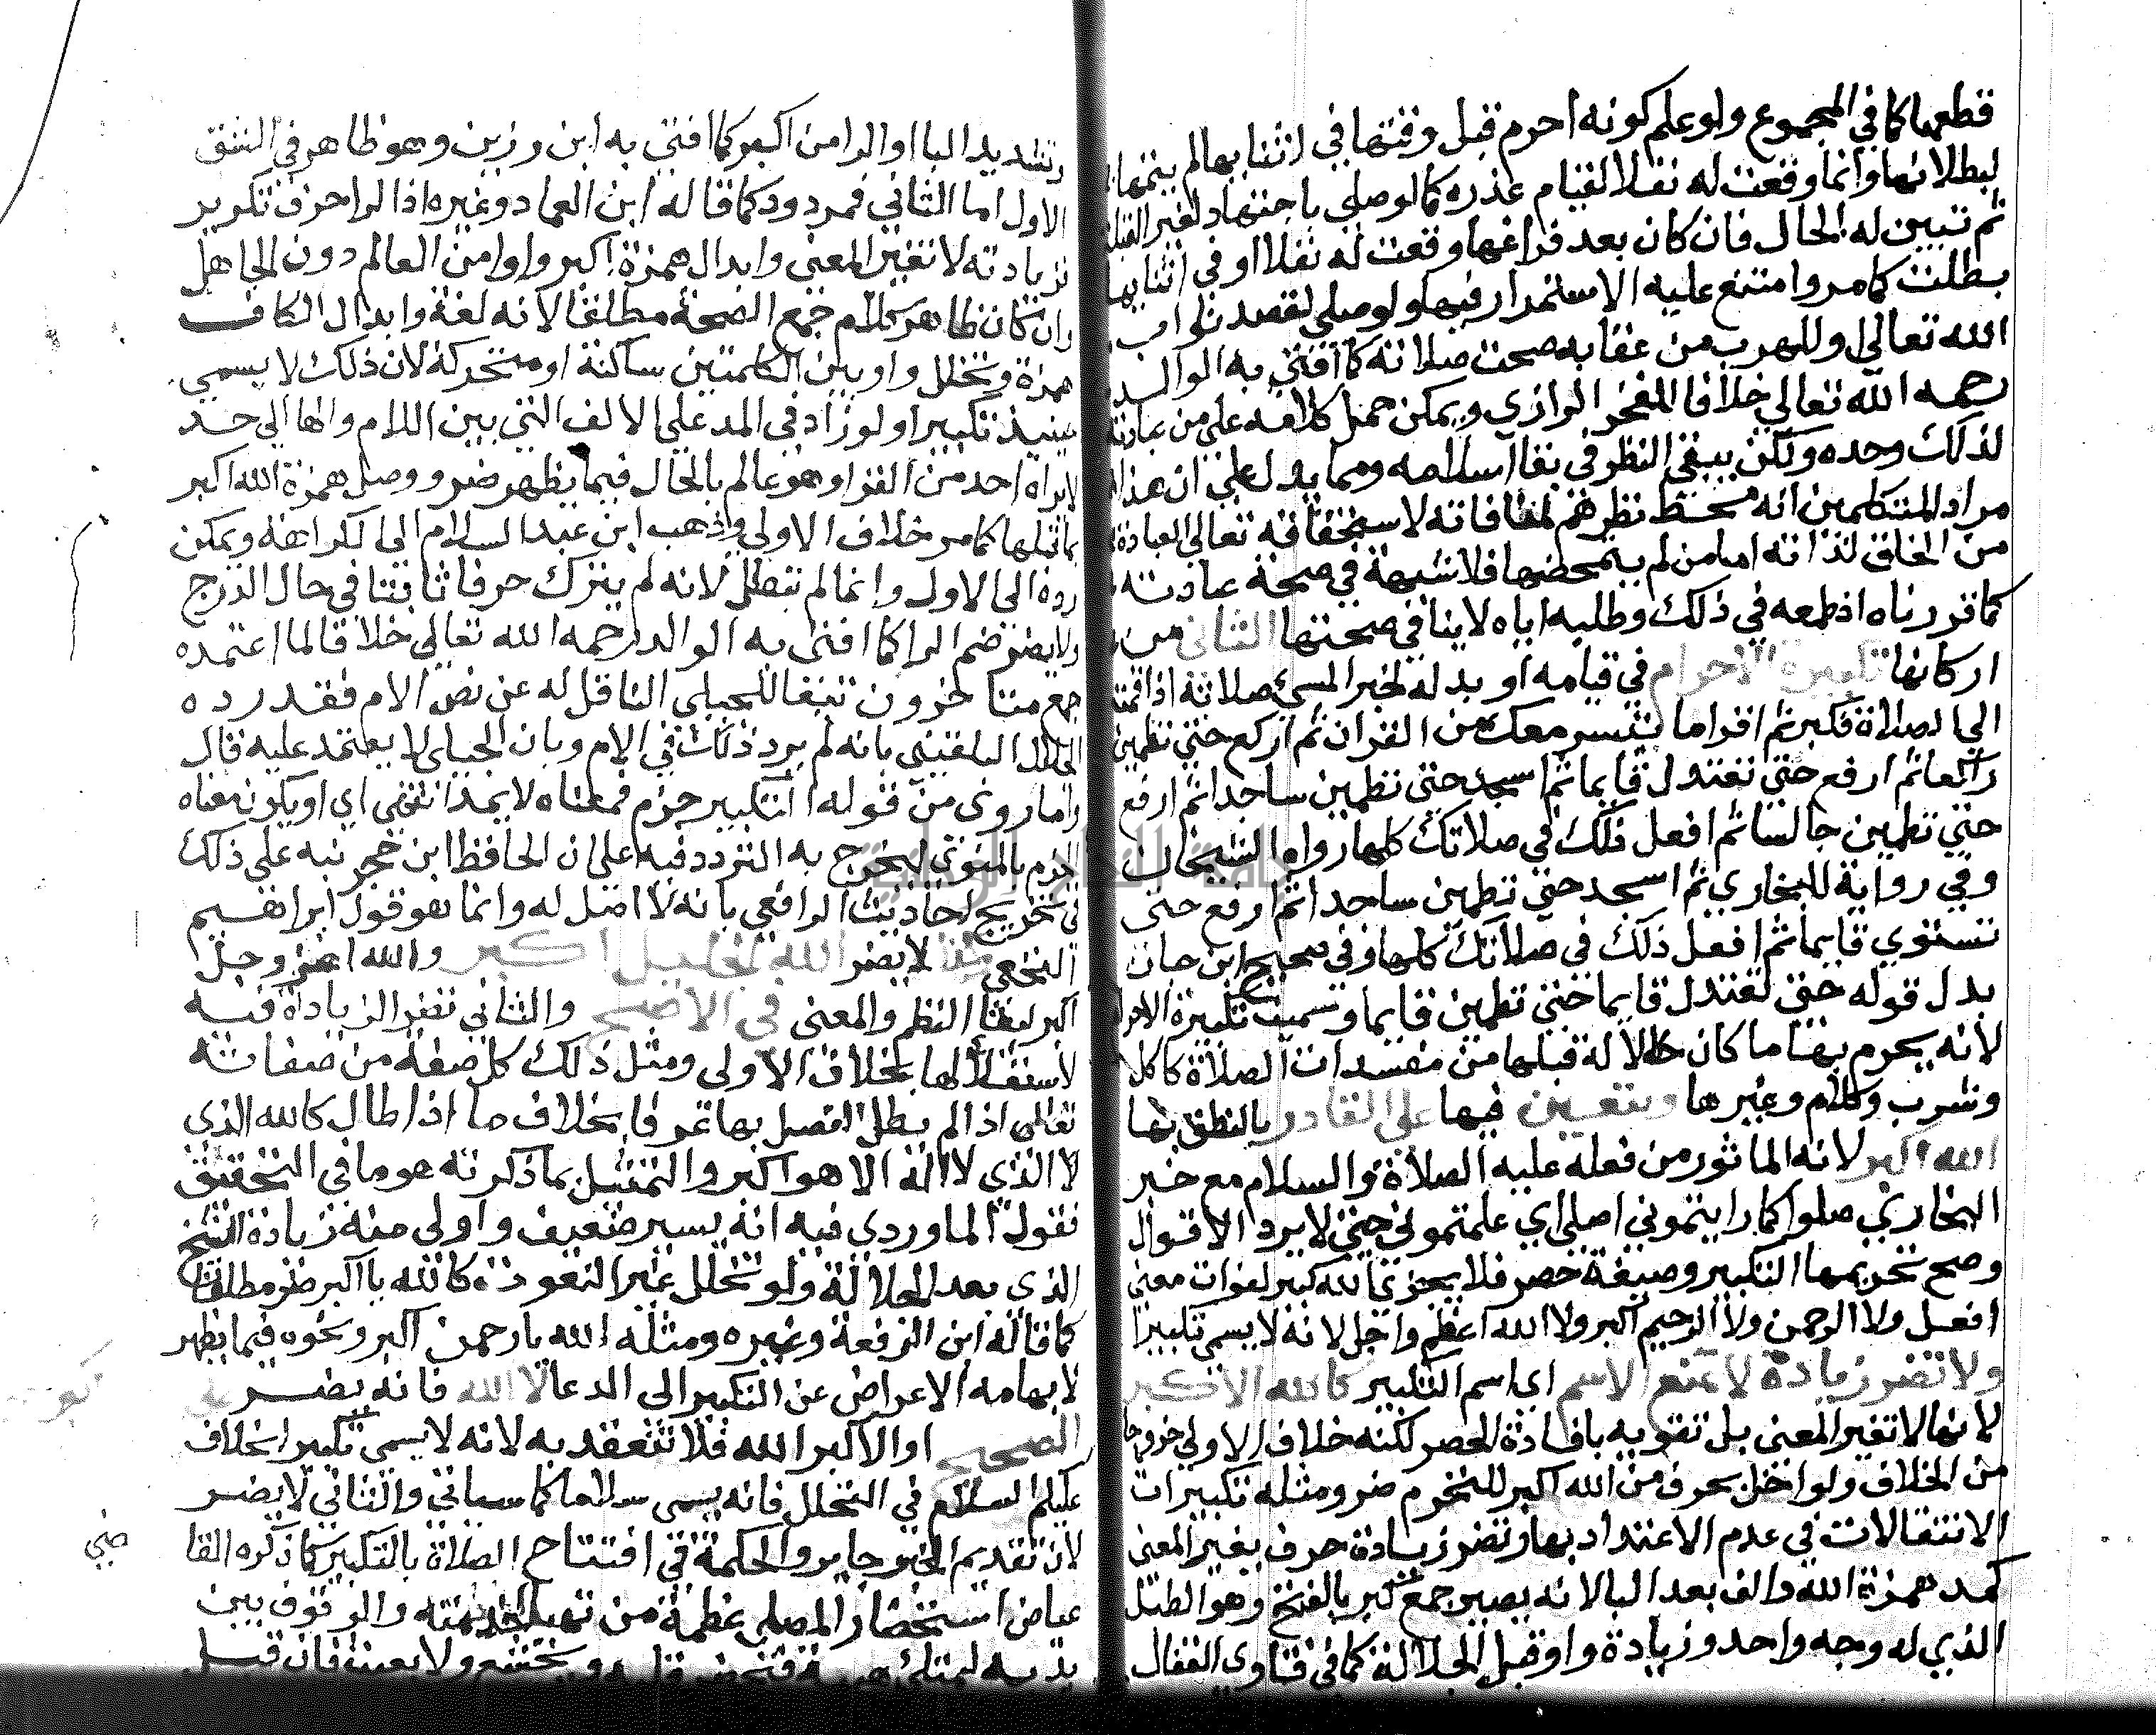 قطعها كما في المجموع ولو علم كونه احرم قبل وقتها في اثنايها لم يتمها
لبطلانها وانما وقعت له نفلا لقيام عذره كما لو صلي باجتهاد لغير القبلة
ثم تبين له الحال فان كان بعد فراغها وقعت له نفلا او في اثنايها
بطلت كما مر وامتنع عليه الاستمرار فيها ولو صلي لقصد ثواب
الله تعالي وللهرب من عقابه صحت صلاته كما افتي به الوالد
رحمه الله تعالي خلافا للفخر الرازي ويمكن حمل كلامه علي من
لذلك وحده ولكن يبقي النظر في بقا اسلامه ومما يدل علي ان هذا
مراد المتكلمين انه محط نظرهم لمنافاته لاستحقاقه تعالي العبادة
من الخلق لذاته اما من لم يمحضها فلا شبهة في صحة عبادته
كما قررناه اذ طمعه في ذلك وطلبه اياه لا ينافي صحتها الثاني من
اركانها تكبيرة الاحرام في قيامه او بدله لخبر المسي صلاته اذا قمت
الي الصلاة فكبر ثم اقرا ما تيسر معك من القران ثم اركع حتي تطمين
راكعا ثم ارفع حتي تعتدل قايما ثم اسجد حتي تطمين ساجدا ثم ارفع
حتي تطمين جالسا ثم افعل ذلك في صلاتك كلها رواه الشيخان
وفي رواية للبخاري ثم اسجد حتي تطمين ساجدا ثم ارفع حتي
تستوي قايما ثم افعل ذلك في صلاتك كلها وفي صحيح ابن حبان
بدل قوله حتي تعتدل قايما حتي تطمين قايما وسميت تكبيرة الاحرام
لانه يحرم بها ما كان حلالا له قبلها من مفسدات الصلاة كاكل
وشرب وكلام وغيرها ويتعين فيها علي القادر بالنطق بها
الله اكبر لانه الماثور من فعله عليه الصلاة والسلام مع خبر
البخاري صلوا كما رايتموني اصلي اي علمتموني حتي لا يرد الاقوال
وصح تحريمها التكبير وصيغة حصر فلا يجزي الله كبير لفوات معني
افعل ولا الرحمن ولا الرحيم اكبر ولا الله اعظم واجل لانه لا يسمي تكبيرا
ولا تضر زيادة لا تمنع الاسم اي اسم التكبير كالله الاكبر
لانها لا تغير المعني بل تقويه بافادة الحصر لكنه خلاف الاولي خروجا
من الخلاف ولو اخل بحرف من الله اكبر للتحرم ضر ومثله تكبيرات
الانتقالات في عدم الاعتداد بها وتضر زيادة حرف يغير المعني
كمد همزة الله والف بعد البا لانه يصير جمع كبر بالفتح وهو الطبل
الذي له وجه واحد وزيادة واو قبل الجلالة كما في فتاوي القفال
وتشديد البا او الرا من اكبر كما افتي به ابن رزين وهو ظاهر في الشق
الاول اما الثاني فمردود كما قاله ابن العماد وغيره اذ الرا حرف تكرير
زيادته لا تغير المعني وابدال همزة اكبر واوا من العالم دون الجاهل
وان كان ظاهر كلام جمع الصحة مطلقا لانه لغة وابدال الكاف
همزة وتخلل واو بين الكلمتين ساكنة او متحركة لان ذلك لا يسمي
حينيذ تكبيرا ولو زاد في المد علي الالف التي بين اللام والها الي حد
لا يراه احد من القرا وهو عالم بالحال فيما يظهر ضر ووصل همزة الله اكبر
بما قبلها كما مر خلاف الاولي وذهب ابن عبد السلام الي الكراهة ويمكن
رده الي الاول وانما لم تبطل لانه لم يترك حرفا ثابتا في حال الدرج
ولا يضر ضم الرا كما افتي به الوالد رحمه الله تعالي خلافا لما اعتمده
جمع متاخرون تبعا للجيلي الناقل له عن نص الام فقد رده
الجلال البلقيني بانه لم يرد ذلك في الام وبان الجيلي لا يعتمد عليه قال
واما روي من قوله التكبير جزم فمعناه لا يمد انتهي اي او يكون معناه
الجزم بالمنوي ليخرج به التردد فيه علي ان الحافظ ابن حجر نبه علي ذلك
في تخريج احاديث الرافعي بانه لا اصل له وانما هو قول ابراهيم
النخعي لا يضر الله الجليل اكبر والله عز وجل
اكبر لبقا النظم والمعني في الاصح والثاني تضر الزيادة فيه
لاستقلالها بخلاف الاولي ومثل ذلك كل صفة من صفاته
تعالي اذا لم يطل الفصل بها عرفا بخلاف ما اذا طال كالله الذي
لا الذي لا اله الا هو اكبر والتمثيل بما ذكرته هو ما في التحقيق
نقول الماوردي فيه انه يسير ضعيف واولي منه زيادة الشيخ
الذي بعد الجلالة ولو تخلل غير النعوت كالله يا اكبر ضر مطلقا
كما قاله ابن الرفعة وغيره ومثله الله يا رحمن اكبر ونحوه فيما يظهر
لايهامه الاعراض عن التكبير الي الدعا لا الله فانه يضر
الصحيح او الاكبر الله فلا تنعقد به لانه لا يسمي تكبيرا بخلاف
عليكم السلام في التحلل فانه يسمي سلاما كما سياتي والثاني لا يضر
لان تقديم الخبر جايز والحكمة في افتتاح الصلاة بالتكبير كما ذكره القا
عياض استحضار المصلي عظمة من تهيا لخدمته والوقوف بين
يديه ليمتلي هيبة فيحضر قلبه ويخشع ولا يعبث فان قيل